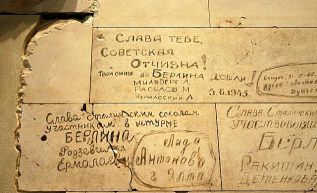 СЛАВА ТЕБЕ,
СОВЕТСКАЯ
ОТЧИЗНА!
Твои сыны до БЕРЛИНА ДОШЛИ!
МИЛЬВЕРТ Л.
РАСУЛОВ М. 3.6.1945.
Слава Сталинским соколам
участникам в штурме
БЕРЛИНА
Ермолаев
Лида
Антонова
г Ялта
Слава Сталинск
УЧАСТВОВАВШ
Берл
РАКИТИН
ДЕТЕНКОВ